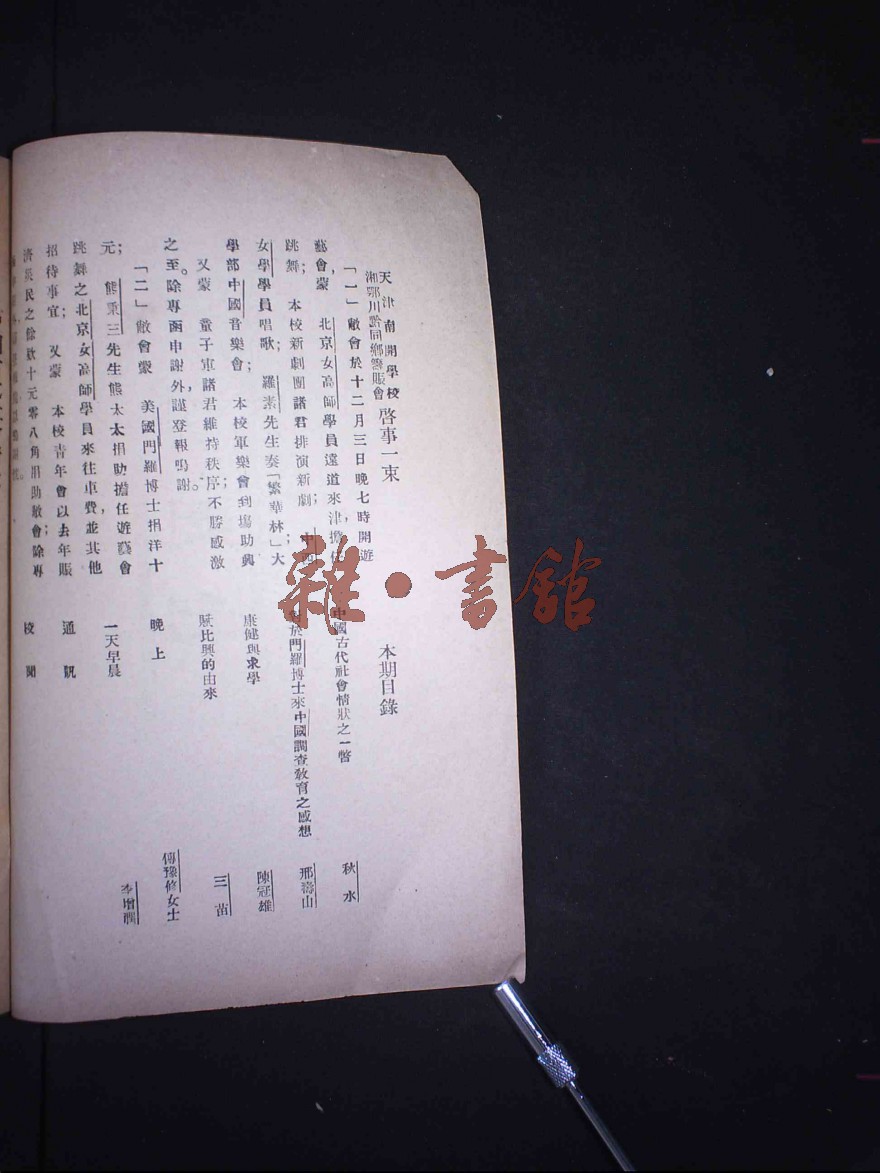 天津南開學校
湘鄂川黔同鄉籌賑會
啓事一束
「一」敝會於十二月三日晚七時開遊
藝會，蒙　北京女高師學員遠道來津，擔任
跳舞；　本校新劇團諸君排演新劇；
女學學員唱歌；　羅素先生奏「繁華林」大
學部中國音樂會；　本校軍樂會到塲助興；
又蒙　童子軍諸君維持秩序不勝感激
之至。除專函申謝外，謹登報鳴謝。
「二」敝會蒙　美國門羅博士捐洋十
元；　熊秉三先生熊太太捐助擔任遊藝會
跳舞之北京女高師學員來往車費，並其他
招待事宜；　又蒙　本校青年會以去年賬
濟災民之餘欵十元零八角捐助敝會；除專
本期目錄
中國古代社會情狀之一瞥　秋水
對於門羅博士來中國調查敎育之感想　邢壽山
康健與求學　陳冠雄
賦比興的由來　三苗
晚上　傅豫修女士
一天早晨　李增濮
通訊
校聞
雜・書館